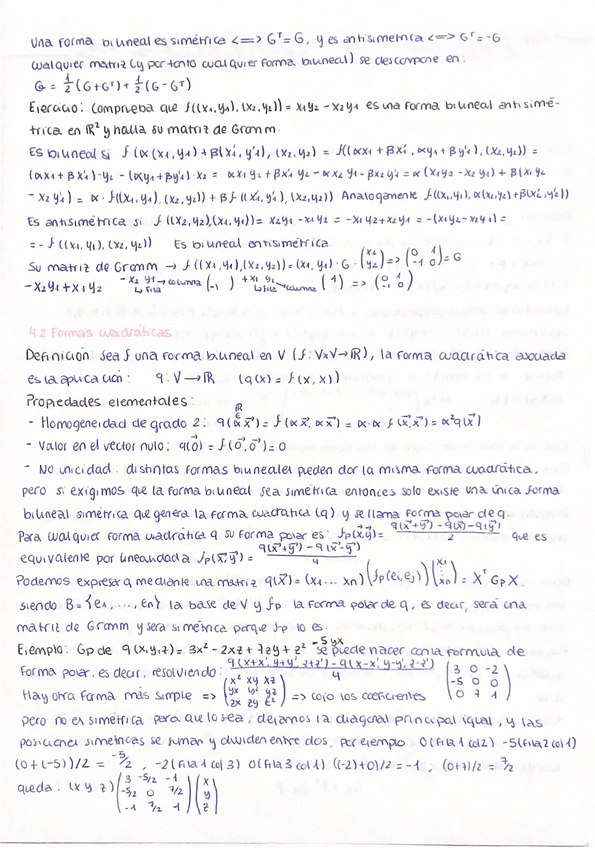 Una forma bilineal es simétrica <=> Gᵀ=G, y es antisimetrica <=> Gᵀ=-G
cualquier matriz (y por tanto cualquier forma bilineal) se descompone en:
G = 1/2 (G+Gᵀ) + 1/2 (G-Gᵀ)
Ejercicio: Comprueba que f((x1,y1),(x2,y2)) = x1y2 - x2y1 es una forma bilineal antisimé-
trica en ℝ² y halla su matriz de Gramm.
Es bilineal si f(α(x1,y1)+β(x1',y'1),(x2,y2) = f((αx1+βx1',αy1+βy'1),(x2,y2)) =
(αx1+βx1')·y2 - (αy1+βy'1)·x2 = αx1y2+βx1'y2 - αx2y1-βx2y1' = α(x1y2-x2y1)+β(x1'y2
- x2y1') = α·f((x1,y1),(x2,y2)) + βf((x1',y1'),(x2,y2)) Analogamente f((x1,y1),α(x2,y2)+β(x2',y2'))
Es antisimétrica si f((x2,y2),(x1,y1)) = x2y1-x1y2 = -x1y2+x2y1 = -(x1y2-x2y1) =
= - f((x1,y1),(x2,y2)) Es bilineal antisimétrica
Su matriz de Gramm → f((x1,y1),(x2,y2)) = (x1,y1)·G·(x2 y2) => (0 1 -1 0) = G
-x2y1+x1y2 -x2 y1 → columna (-1) ↳ fila +x1 y2 → columna (1) ↳ fila => (0 1 -1 0)
4.2 Formas cuadráticas
Definición: Sea f una forma bilineal en V (f: VxV→ℝ), la forma cuadrática asociada
es la aplicación: q: V→ℝ (q(x) = f(x,x))
Propiedades elementales:
- Homogeneidad de grado 2: q(αx⃗) = f(αx⃗, αx⃗) = α·α·f(x⃗,x⃗) = α²q(x⃗)
- Valor en el vector nulo: q(0⃗) = f(0⃗,0⃗) = 0
- No unicidad: distintas formas bilineales pueden dar la misma forma cuadrática,
pero si exigimos que la forma bilineal sea simétrica entonces solo existe una única forma
bilineal simétrica que genera la forma cuadrática (q) y se llama forma polar de q.
Para cualquier forma cuadrática q su forma polar es: fp(x⃗,y⃗) = (q(x⃗+y⃗) - q(x⃗) - q(y⃗))/2 que es
equivalente por linealidad a fp(x⃗,y⃗) = (q(x⃗+y⃗) - q(x⃗-y⃗))/4
Podemos expresar q mediante una matriz q(x⃗) = (x1 ... xn)(fp(ei,ej))(x1 ⋮ xn) = Xᵀ Gp X,
siendo B={e1,...,en} la base de V y fp la forma polar de q, es decir, será una
matriz de Gramm y será simétrica porque fp lo es.
Ejemplo: Gp de q(x,y,z) = 3x² - 2xz + 7zy + z² -5yx se puede hacer con la formula de
forma polar, es decir, resolviendo: (q(x+x',y+y',z+z') - q(x-x',y-y',z-z'))/4 (3 0 -2 -5 0 0 0 7 1)
Hay otra forma más simple => (x² xy xz yx y² yz zx zy z²) => cojo los coeficientes
pero no es simétrica para que lo sea, dejamos la diagonal principal igual, y las
posiciones simétricas se suman y dividen entre dos, por ejemplo 0(fila 1 col 2) -5(fila 2 col 1)
(0+(-5))/2 = -5/2, -2(fila 1 col 3) 0(fila 3 col 1) ((-2)+0)/2 = -1, (0+7)/2 = 7/2
queda: (x y z)(3 -5/2 -1 -5/2 0 7/2 -1 7/2 1)(x y z)